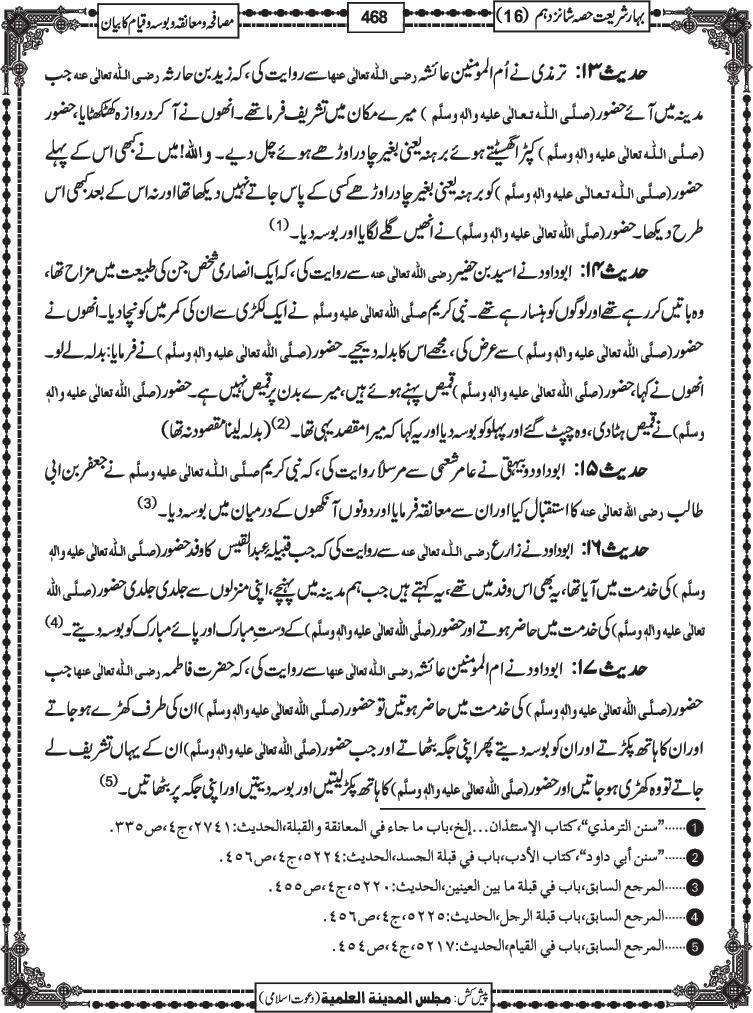 بہار شریعت حصہ شانزدہم (16)
468
مصافحہ و معانقہ و بوسہ و قیام کا بیان
حدیث ۱۳: ترمذی نے اُم المومنین عائشہ رضی اللہ تعالٰی عنہا سے روایت کی، کہ زید بن حارثہ رضی اللہ تعالٰی عنہ جب
مدینہ میں آئے حضور (صلَّی اللہ تعالٰی علیہ واٰلہٖ وسلَّم ) میرے مکان میں تشریف فرما تھے۔ انھوں نے آکر دروازہ کھٹکھٹایا، حضور
(صلَّی اللہ تعالٰی علیہ واٰلہٖ وسلَّم ) کپڑا گھسیٹتے ہوئے برہنہ یعنی بغیر چادر اوڑھے ہوئے چل دیے۔ واللہ! میں نے کبھی اس کے پہلے
حضور (صلَّی اللہ تعالٰی علیہ واٰلہٖ وسلَّم ) کو برہنہ یعنی بغیر چادر اوڑھے کسی کے پاس جاتے نہیں دیکھا تھا اور نہ اس کے بعد کبھی اس
طرح دیکھا۔ حضور (صلَّی اللہ تعالٰی علیہ واٰلہٖ وسلَّم) نے انھیں گلے لگایا اور بوسہ دیا۔ (1)
حدیث ۱۴: ابوداود نے اسید بن حضیر رضی اللہ تعالٰی عنہ سے روایت کی، کہ ایک انصاری شخص جن کی طبیعت میں مزاح تھا،
وہ باتیں کررہے تھے اور لوگوں کو ہنسا رہے تھے۔ نبی کریم صلَّی اللہ تعالٰی علیہ واٰلہٖ وسلَّم نے ایک لکڑی سے ان کی کمر میں کونچا دیا۔ انھوں نے
حضور (صلَّی اللہ تعالٰی علیہ واٰلہٖ وسلَّم ) سے عرض کی، مجھے اس کا بدلہ دیجیے۔ حضور (صلَّی اللہ تعالٰی علیہ واٰلہٖ وسلَّم ) نے فرمایا: بدلہ لے لو۔
انھوں نے کہا، حضور (صلَّی اللہ تعالٰی علیہ واٰلہٖ وسلَّم) قمیص پہنے ہوئے ہیں، میرے بدن پر قمیص نہیں ہے۔ حضور (صلَّی اللہ تعالٰی علیہ واٰلہٖ
وسلَّم) نے قمیص ہٹادی، وہ چپٹ گئے اور پہلو کو بوسہ دیا اور یہ کہا کہ میرا مقصد یہی تھا۔ (2) (بدلہ لینا مقصود نہ تھا)
حدیث ۱۵: ابوداود و بیہقی نے عامر شعبی سے مرسلاً روایت کی، کہ نبی کریم صلَّی اللہ تعالٰی علیہ واٰلہٖ وسلَّم نے جعفر بن ابی
طالب رضی اللہ تعالٰی عنہ کا استقبال کیا اور ان سے معانقہ فرمایا اور دونوں آنکھوں کے درمیان میں بوسہ دیا۔ (3)
حدیث ۱۶: ابوداود نے زارع رضی اللہ تعالٰی عنہ سے روایت کی کہ جب قبیلۂ عبدالقیس کا وفد حضور (صلَّی اللہ تعالٰی علیہ واٰلہٖ
وسلَّم ) کی خدمت میں آیا تھا، یہ بھی اس وفد میں تھے، یہ کہتے ہیں جب ہم مدینہ میں پہنچے، اپنی منزلوں سے جلدی جلدی حضور (صلَّی اللہ
تعالٰی علیہ واٰلہٖ وسلَّم) کی خدمت میں حاضر ہوتے اور حضور (صلَّی اللہ تعالٰی علیہ واٰلہٖ وسلَّم) کے دستِ مبارک اور پائے مبارک کو بوسہ دیتے۔ (4)
حدیث ۱۷: ابوداود نے ام المومنین عائشہ رضی اللہ تعالٰی عنہا سے روایت کی، کہ حضرت فاطمہ رضی اللہ تعالٰی عنہا جب
حضور (صلَّی اللہ تعالٰی علیہ واٰلہٖ وسلَّم ) کی خدمت میں حاضر ہوتیں تو حضور (صلَّی اللہ تعالٰی علیہ واٰلہٖ وسلَّم ) ان کی طرف کھڑے ہوجاتے
اور ان کا ہاتھ پکڑتے اور ان کو بوسہ دیتے پھر اپنی جگہ بٹھاتے اور جب حضور (صلَّی اللہ تعالٰی علیہ واٰلہٖ وسلَّم) ان کے یہاں تشریف لے
جاتے تو وہ کھڑی ہوجاتیں اور حضور (صلَّی اللہ تعالٰی علیہ واٰلہٖ وسلَّم) کا ہاتھ پکڑ لیتیں اور بوسہ دیتیں اور اپنی جگہ پر بٹھاتیں۔ (5)
1 ......”سنن الترمذي“، کتاب الإستئذان...إلخ، باب ما جاء في المعانقة والقبلة، الحدیث:٢٧٤١، ج٤، ص٣٣٥.
2 ......”سنن أبي داود“، کتاب الأدب، باب في قبلة الجسد، الحدیث:٥٢٢٤، ج٤، ص٤٥٦.
3 ......المرجع السابق، باب في قبلة ما بین العینین، الحدیث:٥٢٢٠، ج٤، ص٤٥٥.
4 ......المرجع السابق، باب قبلة الرجل، الحدیث:٥٢٢٥، ج٤، ص٤٥٦.
5 ......المرجع السابق، باب في القیام، الحدیث:٥٢١٧، ج٤، ص٤٥٤.
پیش کش: مجلس المدینة العلمیة (دعوت اسلامی)